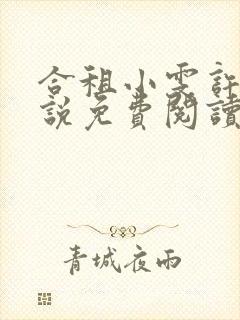 合租小雯訴
說免費閱讀
青城夜雨